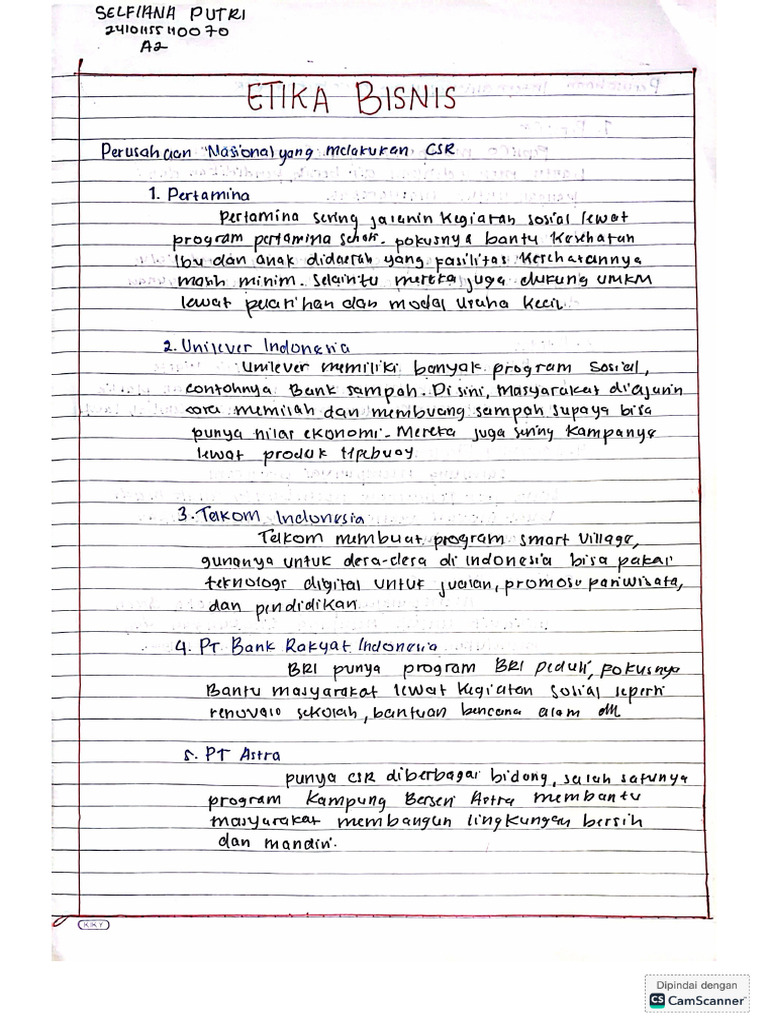 SELFIANA PUTRI
A2
ETIKA BISNIS
Perusahaan "Nasional yang melakukan CSR
1. Pertamina
Pertamina sering jalanin kegiatan sosial lewat
program pertamina sehat. pokusnya bantu kesehatan
Ibu dan anak didaerah yang fasilitas kesehatannya
masih minim. selain itu mereka juga dukung UMKM
lewat pelatihan dan modal usaha kecil
2. Unilever Indonesia
Unilever memiliki banyak program sosial,
contohnya Bank sampah. Di sini, masyarakat diajarin
cara memilah dan membuang sampah supaya bisa
punya nilai ekonomi. Mereka juga sering kampanye
lewat produk
3. Telkom Indonesia
Telkom membuat program smart village,
gunanya untuk desa-desa di indonesia bisa pakai
teknologi digital untuk jualan, promosi pariwisata,
dan pendidikan
4. PT Bank Rakyat Indonesia
BRI punya program BRI peduli, fokusnya
Bantu masyarakat lewat kegiatan sosial seperti
renovasi sekolah, bantuan bencana alam dll
5. PT Astra
punya CSR diberbagai bidang, salah satunya
program Kampung Berseri Astra membantu
masyarakat membangun lingkungan bersih
dan mandiri.
KKY
Dipindai dengan
CS CamScanner